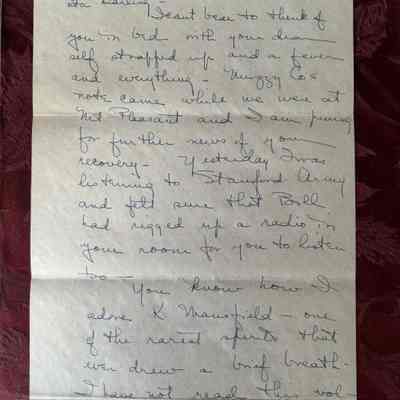 darling -
I cant bear to think of
you in bed with your dear
self strapped up and a fever
and everything -
note came while we were at
Mt Pleasant and I am pining
for further news of your
recovery - Yesterday I was
listening to Stanford Army
and felt sure that Bill
had rigged up a radio in
your room for you to listen
to -
You know how I
adore K Mansfield - one
of the rarest spirits that
ever drew a brief breath -
I have not read this vol-